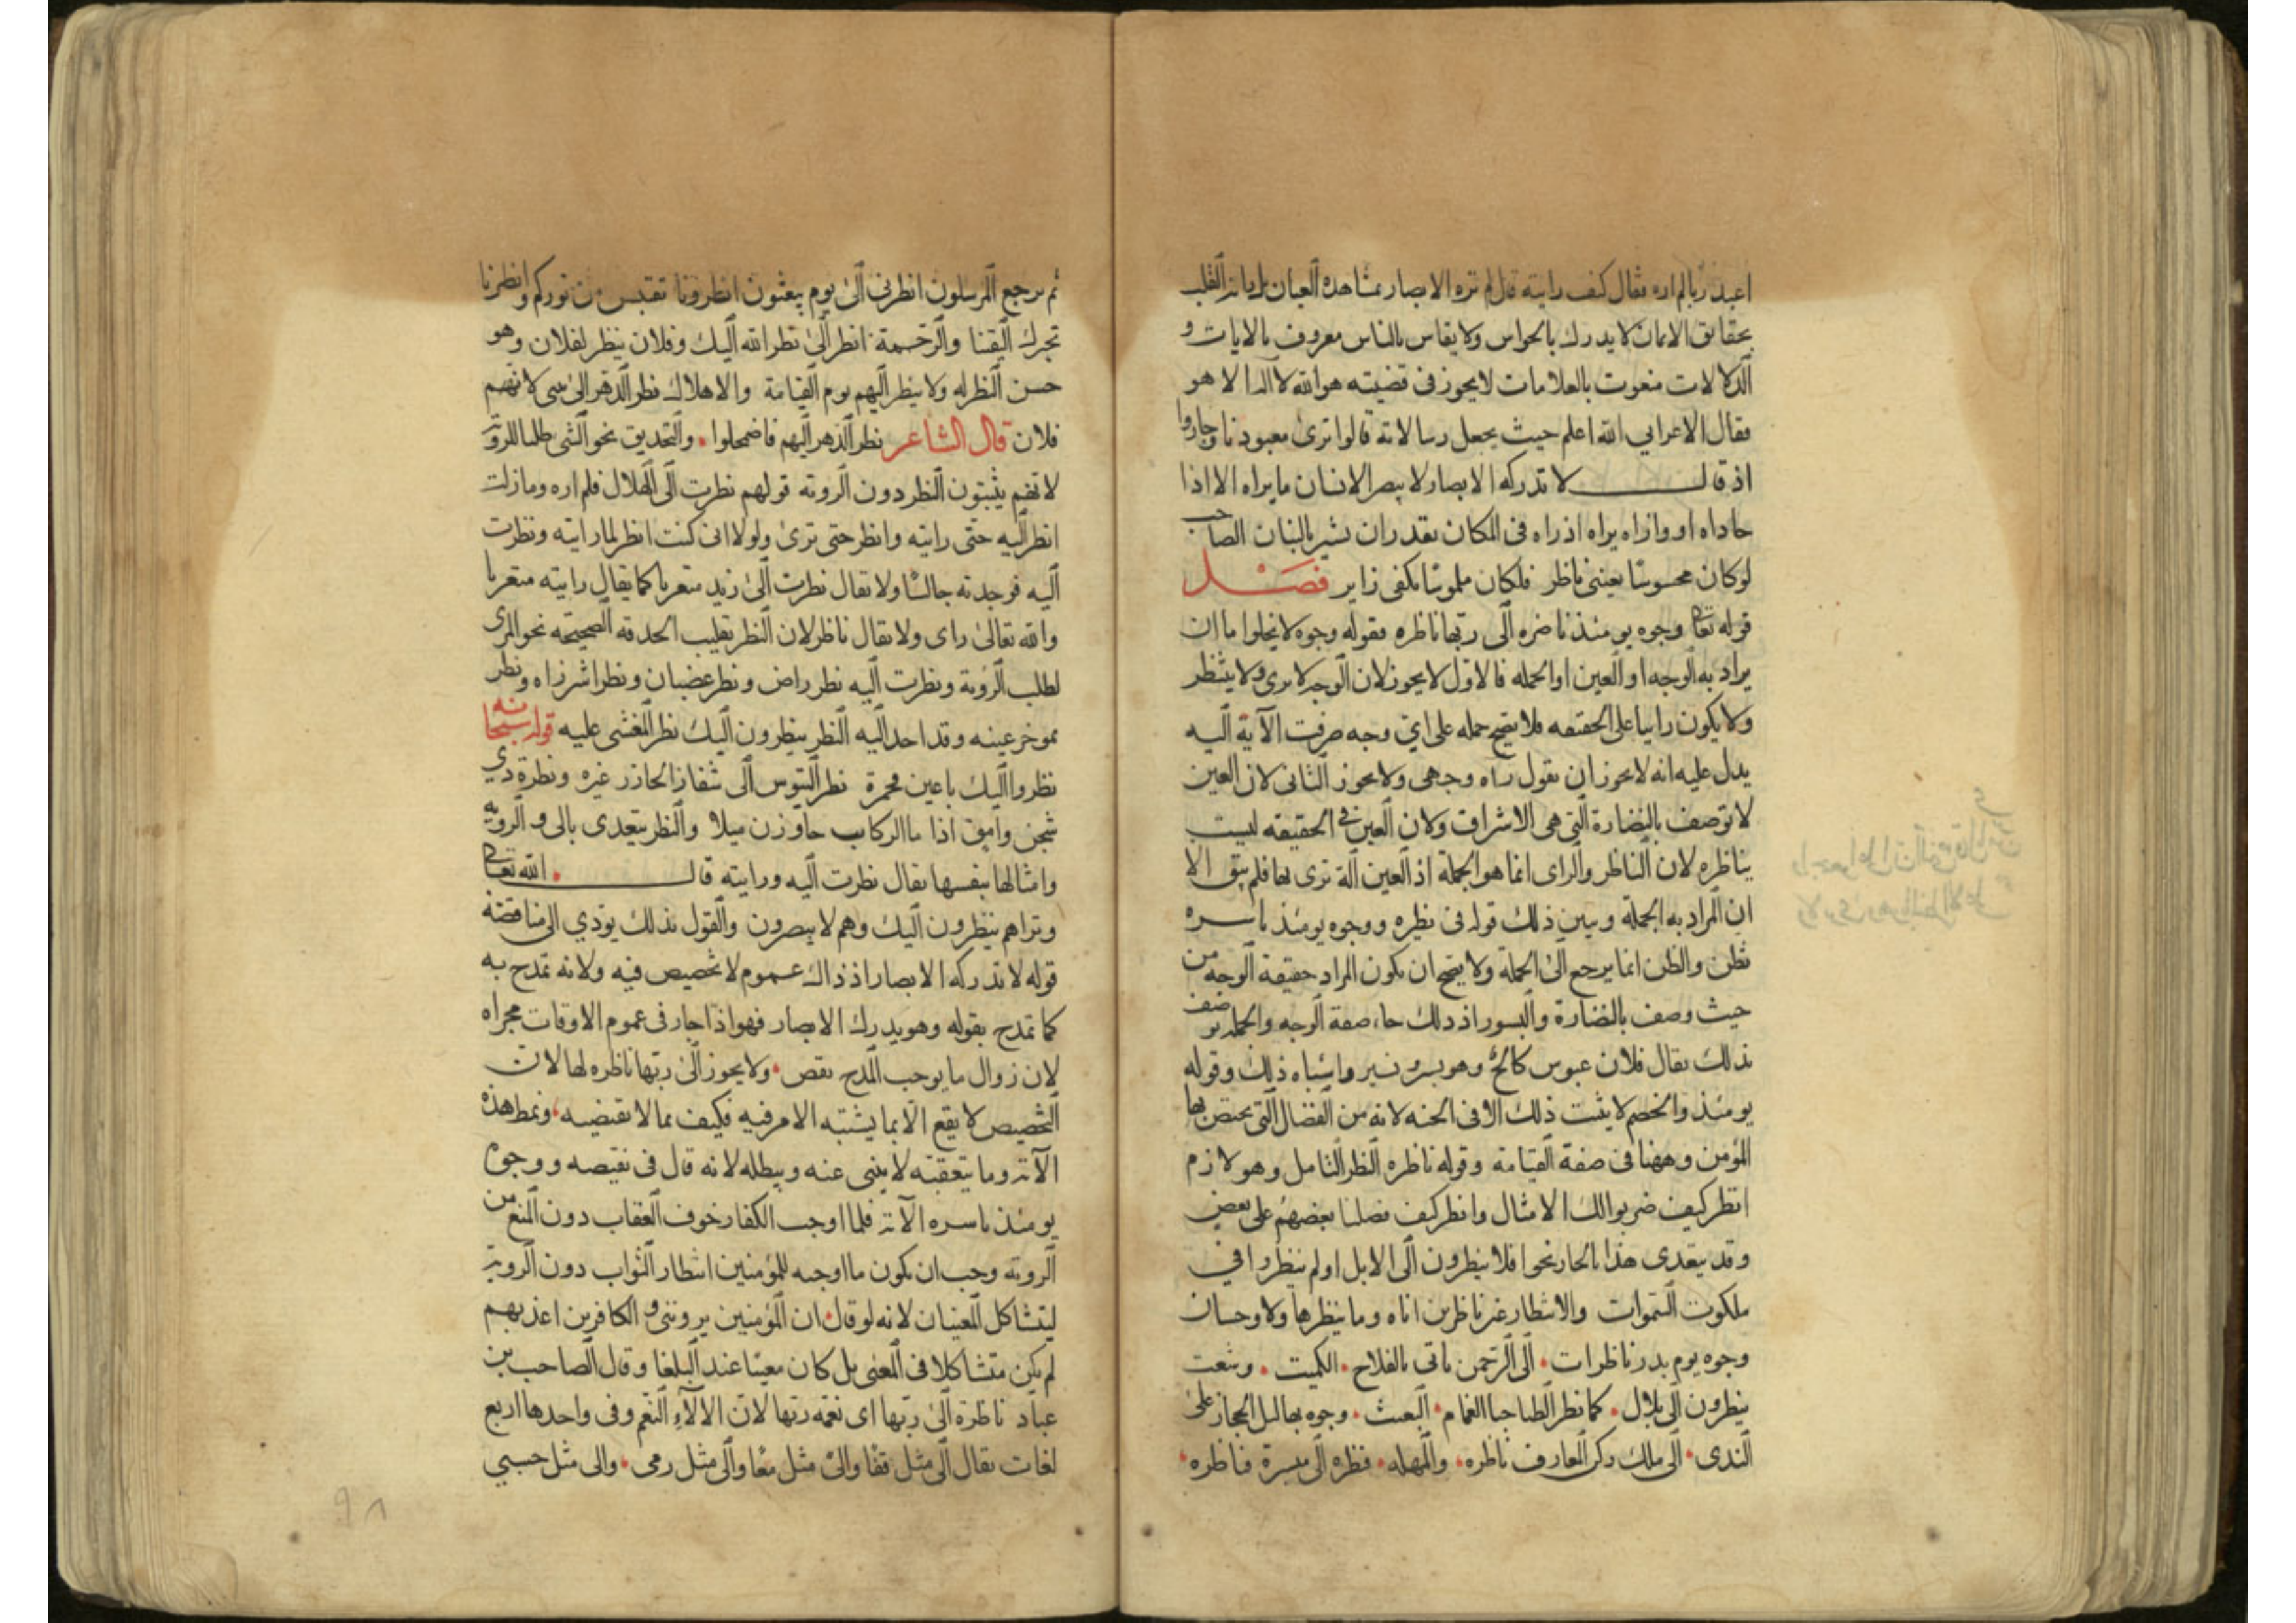 اعبد ربا لم اره فقال كيف رايته قال لم تره الابصار بمشاهده العيان بل راته القلب
بحقايق الايمان لا يدرك بالحواس ولا يقاس بالناس معروف بالايات و
الدلالات منعوت بالعلامات لا يجوز فى قضيته هو الله لا اله الا هو
فقال الاعرابي الله اعلم حيث يجعل رسالاته قالوا ترى معبودنا
اذ قال لا تدركه الابصار لا يبصر الانسان ما يراه الا اذا
حاذاه او وازاه يراه اذ راه فى المكان بقدر ان يشير بالبنان الصاحب
لو كان محسوسًا بعينى ناظر فلكان ملموسًا بكفى زاير فصل
قوله تعالى وجوه يومئذ ناضره الى ربها ناظره فقوله وجوه لا يخلوا ما ان
يراد به الوجه او العين او الجمله فالاول لا يجوز لان الوجه لا يرى ولا ينتظر
ولا يكون رايا على الحقيقه فلا يصح حمله على اي وجه صرفت الآية اليه
يدل عليه انه لا يجوز ان يقول راه وجهى ولا يجوز الثانى لان العين
لا توصف بالنضارة التى هى الاشراق ولان العين فى الحقيقه ليست
بناظره لان الناظر والراى انما هو الجملة اذ العين آلة ترى بها فلم يبق الا
ان المراد به الجملة ويبين ذلك قوله فى نظيره ووجوه يومئذ باسره
تظن والظن انما يرجع الى الجملة ولا يصح ان يكون المراد حقيقة الوجه من
حيث وصف بالنضارة والبسور اذ ذلك صفة الوجه والجمله توصف
بذلك يقال فلان عبوس كالح وهو بسر ونسر واشباه ذلك وقوله
يومئذ والخصم لا يثبت ذلك الا فى الجنه لانه من الفضال التى يختص بها
المؤمن وههنا فى صفة القيامة وقوله ناظره النظر التامل وهو لازم
انظر كيف ضربوا لك الامثال وانظر كيف فضلنا بعضهم على بعض
وقد يتعدى هذا بالجار نحو افلا ينظرون الى الابل اولم ينظروا في
ملكوت السموات والانتظار غير ناظرين اناه وما ينظرها ولا وحسان
وجوه يوم بدر ناظرات الى الرحمن ياتى بالفلاح الكميت وشعث
ينظرون الى بلال كما نظر الظما حبا الغمام البعيث وجوه بهاليل الحجاز على
الندى الى ملك ركن المعارف ناظره والمهله فنظره الى ميسرة فناظره
ثم يرجع المرسلون انظرنى الى يوم يبعثون انظرونا نقتبس من نوركم وانظرنا
نخبرك اليقينا والرحمة انظر الى نظر الله اليك وفلان ينظر لفلان وهو
حسن النظر له ولا ينظر اليهم يوم القيامة والاهلاك نظر الدهر الى بنى لانهم
فلان قال الشاعر نظر الدهر اليهم فاضمحلوا والتحديق نحو الشى طلبا للرويه
لانهم يثبتون النظر دون الرويه قولهم نظرت الى الهلال فلم اره وما زلت
انظر اليه حتى رايته وانظر حتى ترى ولولا انى كنت انظر لما رايته ونظرت
اليه فوجدته جالسًا ولا يقال نظرت الى زيد متعريا كما يقال رايته متعريا
والله تعالى راى ولا يقال ناظر لان النظر تقليب الحدقه الصحيحه نحو المرى
لطلب الروية ونظرت اليه نظر راض ونظر غضبان ونظرا شزراه ونظر
بموخر عينه وقد احد اليه النظر ينظرون اليك نظر المغشى عليه قوله سبحانه
نظروا اليك باعين محمرة نظر التيوس الى شفار الجازر غيره ونظرة ذي
شجن وامق اذا ما الركاب جاوزن ميلا والنظر يتعدى بالى والرويه
وامثالها بنفسها يقال نظرت اليه ورايته قال الله تعالى
وتراهم ينظرون اليك وهم لا يبصرون والقول بذلك يؤدي الى مناقضة
قوله لا تدركه الابصار اذ ذاك عموم لا تخصيص فيه ولانه تمدح به
كما تمدح بقوله وهو يدرك الابصار فهو اذا جار فى عموم الاوقات مجراه
لان زوال ما يوجب المدح نقص ولا يجوز الى ربها ناظره لها لان
التخصيص لا يقع الا بما يشتبه الامر فيه فكيف بما لا يقتضيه ونمط هذه
الآية وما يتعقبه لا ينبى عنه ويبطله لانه قال فى نقيضه ووجوه
يومئذ باسره الآية فلما اوجب الكفار خوف العقاب دون المنع من
الرويه وجب ان يكون ما اوجبه للمؤمنين انتظار الثواب دون الرويه
ليتشاكل المعنيان لانه لو قال ان المؤمنين يروننى والكافرين اعذبهم
لم يكن متشاكلا فى المعنى بل كان معيبا عند البلغا وقال الصاحب بن
عباد ناظرة الى ربها اى نعمة ربها لان الآلاء النعم وفى واحدها اربع
لغات يقال الى مثل قفا والى مثل معا والى مثل رمى والى مثل حسبي
٩٨